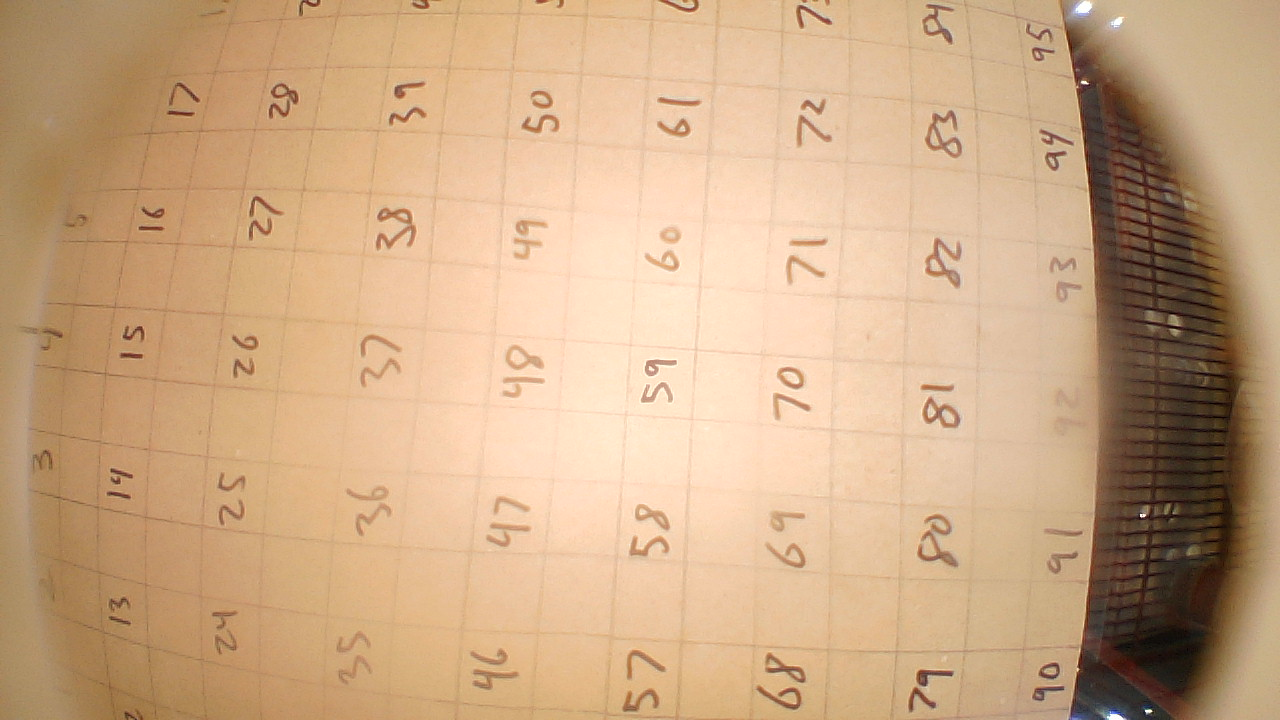 3 4 5
13 14 15 16 17
24 25 26 27 28
35 36 37 38 39
46 47 48 49 50
57 58 59 60 61
68 69 70 71 72 73
79 80 81 82 83 84
90 91 92 93 94 95